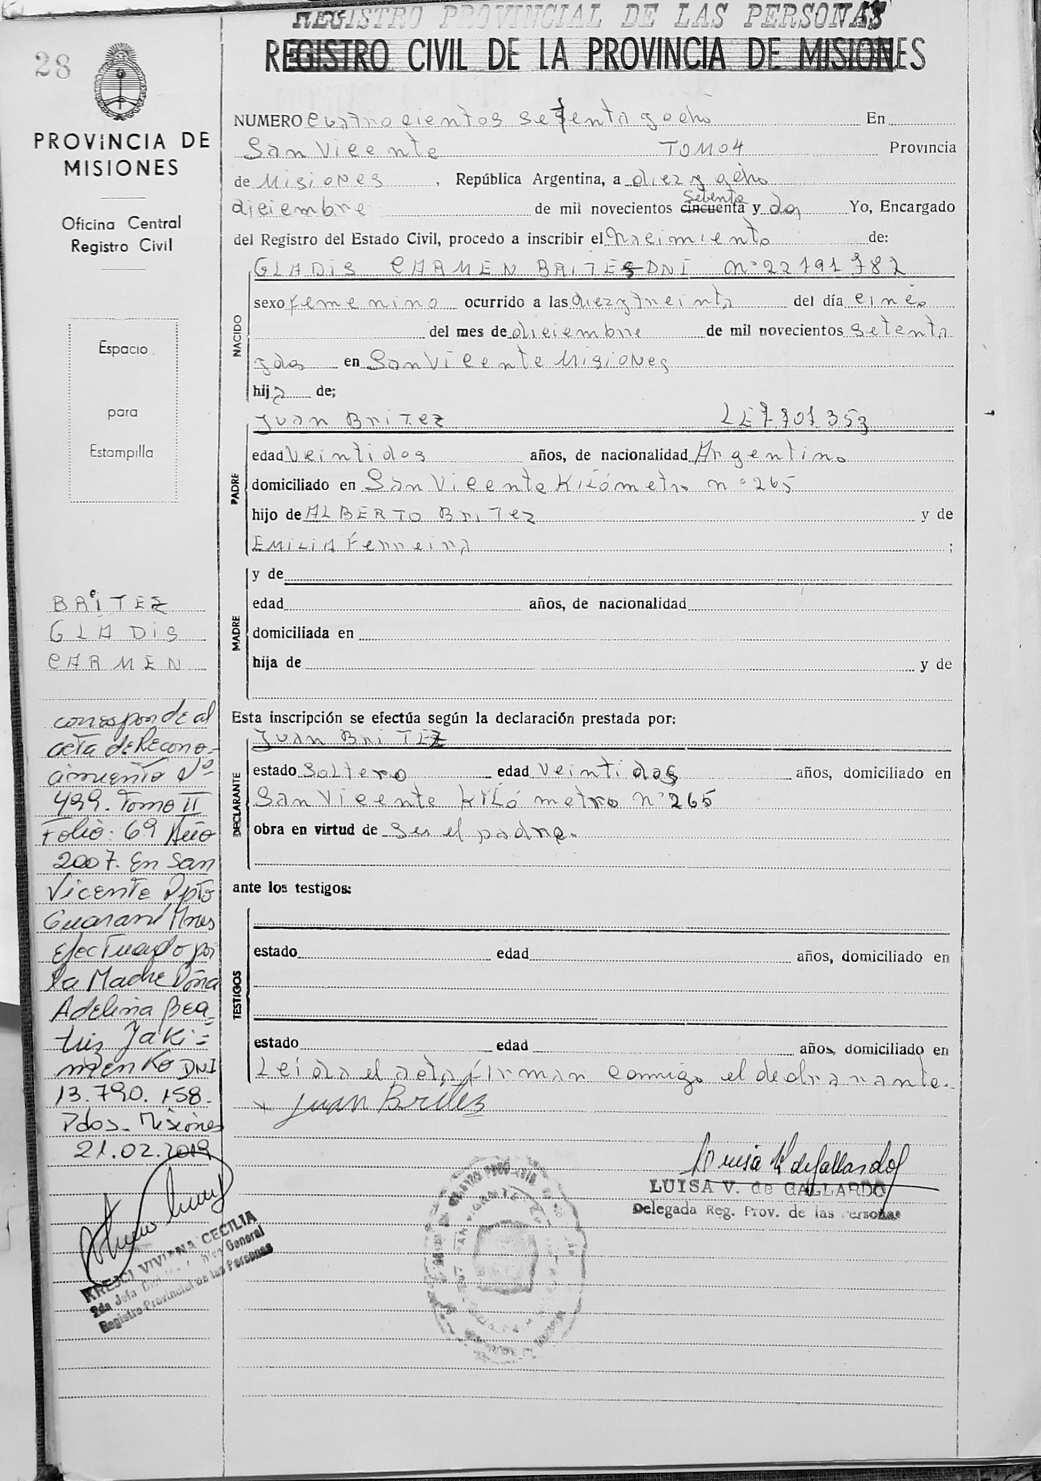 REGISTRO PROVINCIAL DE LAS PERSONAS
REGISTRO CIVIL DE LA PROVINCIA DE MISIONES
28
PROVINCIA DE
MISIONES
Oficina Central
Registro Civil
Espacio
para
Estampilla
BRITEZ
GLADIS
CARMEN
corresponde al
acta de Recono-
cimiento Nº
499. Tomo II
Folio: 69 Año
2007. En San
Vicente Dpto
Guarani Mnes
efectuado por
la Madre Doña
Adelina Bea-
triz Jaki=
mienko DNI
13.790.158.
Pdos- Misiones
21.02.2019
KREJCI VIVIANA CECILIA
2da Jefa General
Registro Provincial de las Personas
NUMERO cuatrocientos setenta y ocho En
San Vicente TOMO 4 Provincia
de Misiones, República Argentina, a diez y ocho
diciembre de mil novecientos cincuenta setenta y dos Yo, Encargado
del Registro del Estado Civil, procedo a inscribir el nacimiento de:
GLADIS CARMEN BRITES DNI nº 22191782
NACIDO
sexo femenino ocurrido a las diez y treinta del día cinco
del mes de diciembre de mil novecientos setenta
y dos en San Vicente Misiones
hija de;
Juan BRITEZ LE 7701353
PADRE
edad veintidos años, de nacionalidad Argentino
domiciliado en San Vicente Kilómetro nº 265
hijo de ALBERTO BRITEZ y de
EMILIA Ferreira ;
MADRE
y de
edad años, de nacionalidad
domiciliada en
hija de y de
Esta inscripción se efectúa según la declaración prestada por:
Juan BRITEZ
DECLARANTE
estado Soltero edad veintidos años, domiciliado en
San Vicente Kilómetro nº 265
obra en virtud de ser el padre.
ante los testigos:
TESTIGOS
estado edad años, domiciliado en
estado edad años, domiciliado en
Leida el acta firman conmigo el declarante.
x Juan Britez
LUISA V. de GALLARDO
Delegada Reg. Prov. de las Personas